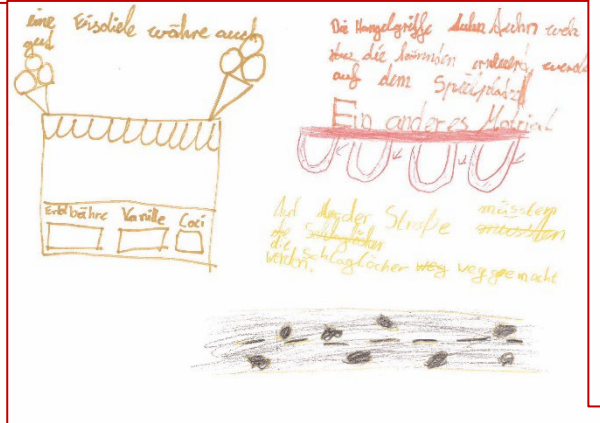 eine Eisdiele währe auch
gut
Erdbähre Vanille Coci
Die Hangelgriffe
die könnten werde
auf dem Spielplatz
Ein anderes Matrial
Auf der Straße müssten
die Schlaglöcher weg weggemacht
werden.